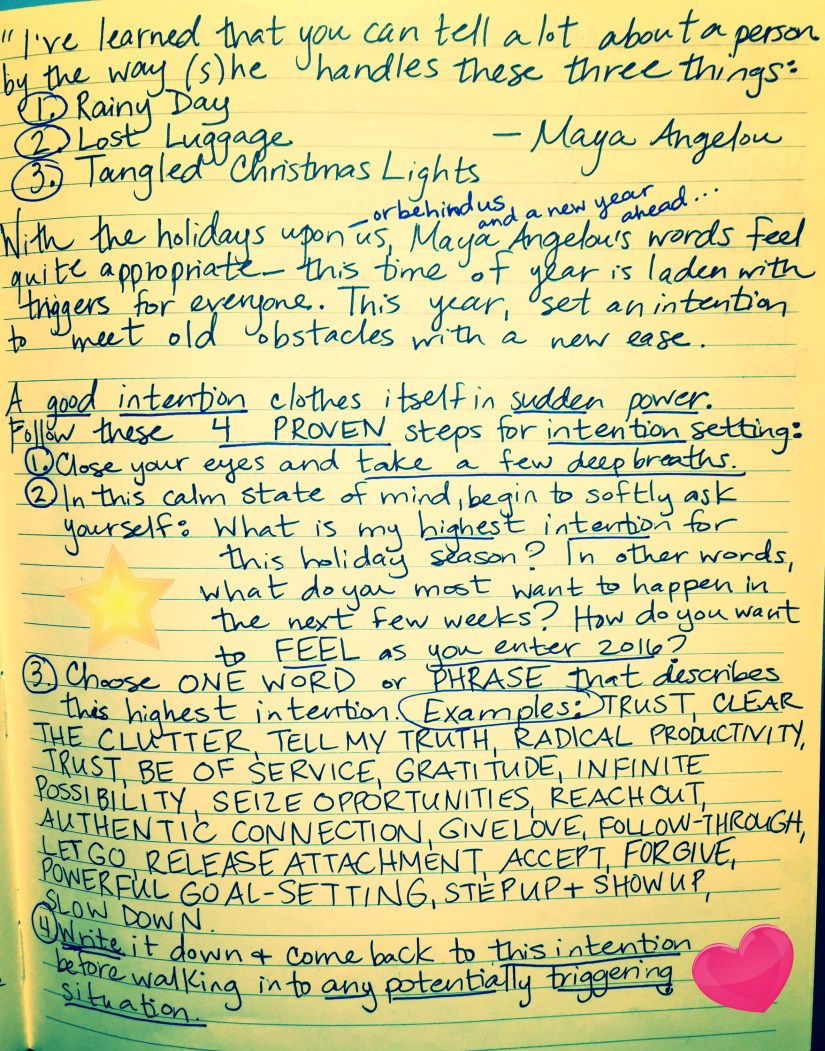 "I've learned that you can tell a lot about a person
by the way (s)he handles these three things:
1. Rainy Day
2. Lost Luggage
— Maya Angelou
3. Tangled Christmas Lights
— or behind us and a new year ahead...
With the holidays upon us, Maya Angelou's words feel
quite appropriate— this time of year is laden with
triggers for everyone. This year, set an intention
to meet old obstacles with a new ease.
A good intention clothes itself in sudden power.
Follow these 4 PROVEN steps for intention setting:
1. Close your eyes and take a few deep breaths.
2 In this calm state of mind, begin to softly ask
yourself: What is my highest intention for
this holiday season? In other words,
what do you most want to happen in
the next few weeks? How do you want
to FEEL as you enter 2016?
3. Choose ONE WORD or PHRASE that describes
this highest intention. Examples: TRUST, CLEAR
THE CLUTTER, TELL MY TRUTH, RADICAL PRODUCTIVITY,
TRUST, BE OF SERVICE, GRATITUDE, INFINITE
POSSIBILITY, SEIZE OPPORTUNITIES, REACH OUT,
AUTHENTIC CONNECTION, GIVE LOVE, FOLLOW-THROUGH,
LET GO, RELEASE ATTACHMENT, ACCEPT, FORGIVE,
POWERFUL GOAL-SETTING, STEP UP + SHOW UP,
SLOW DOWN.
4 Write it down + come back to this intention
before walking into any potentially triggering
situation.